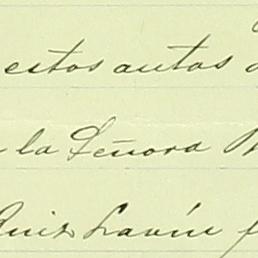 estos autos
la Señora
Ruiz Lavín